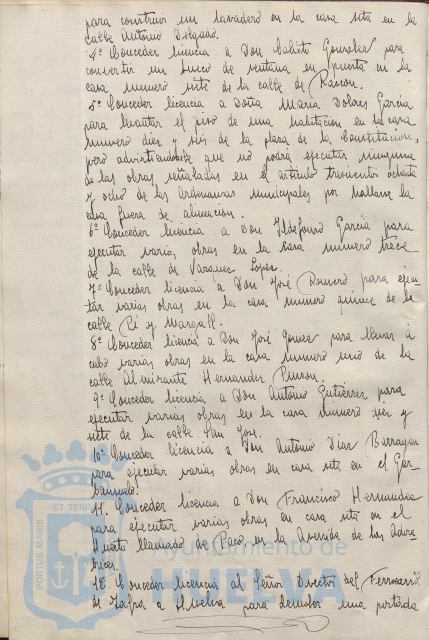 para construir un lavadero en la casa sita en la
calle Antonio Delgado.
4º Conceder licencia a Don Calixto Gonzalez para
convertir un hueco de ventana en puerta en la
casa numero siete de la calle de Rascon.
5º Conceder licencia a Doña Maria Dolores Garcia
para levantar el piso de una habitacion en la casa
numero diez y seis de la plaza de la Constitucion,
pero advirtiendosele que no podrá ejecutar ninguna
de las obras señaladas en el articulo trescientos ochenta
y ocho de las Ordenanzas municipales por hallarse la
casa fuera de alineacion.
6º Conceder licencia a Don Ildefonso Garcia para
ejecutar varias obras en la casa numero trece
de la calle de Vazquez Lopez.
7º Conceder licencia a Don José Romero para ejecu-
tar varias obras en la casa numero quince de la
calle Pi y Margall.
8º Conceder licencia a Don José Gomez para llevar á
cabo varias obras en la casa numero uno de la
calle Almirante Hernandez Pinzon.
9º Conceder licencia a Don Antonio Gutierrez para
ejecutar varias obras en la casa numero diez y
siete de la calle San José.
10º Conceder licencia a Don Antonio Diaz Barragan
para ejecutar varias obras en casa sita en el Gar-
banzuelo.
11. Conceder licencia a Don Francisco Hernandez
para ejecutar varias obras en casa sita en el
Huerto llamado de Paco en la Avenida de las Adora-
trices.
12. Conceder licencia al Señor Director del Ferrocarril
de Zafra a Huelva para demoler una portada
PORTUS MARIS
ET TERRAE
Ayuntamiento de
HUELVA